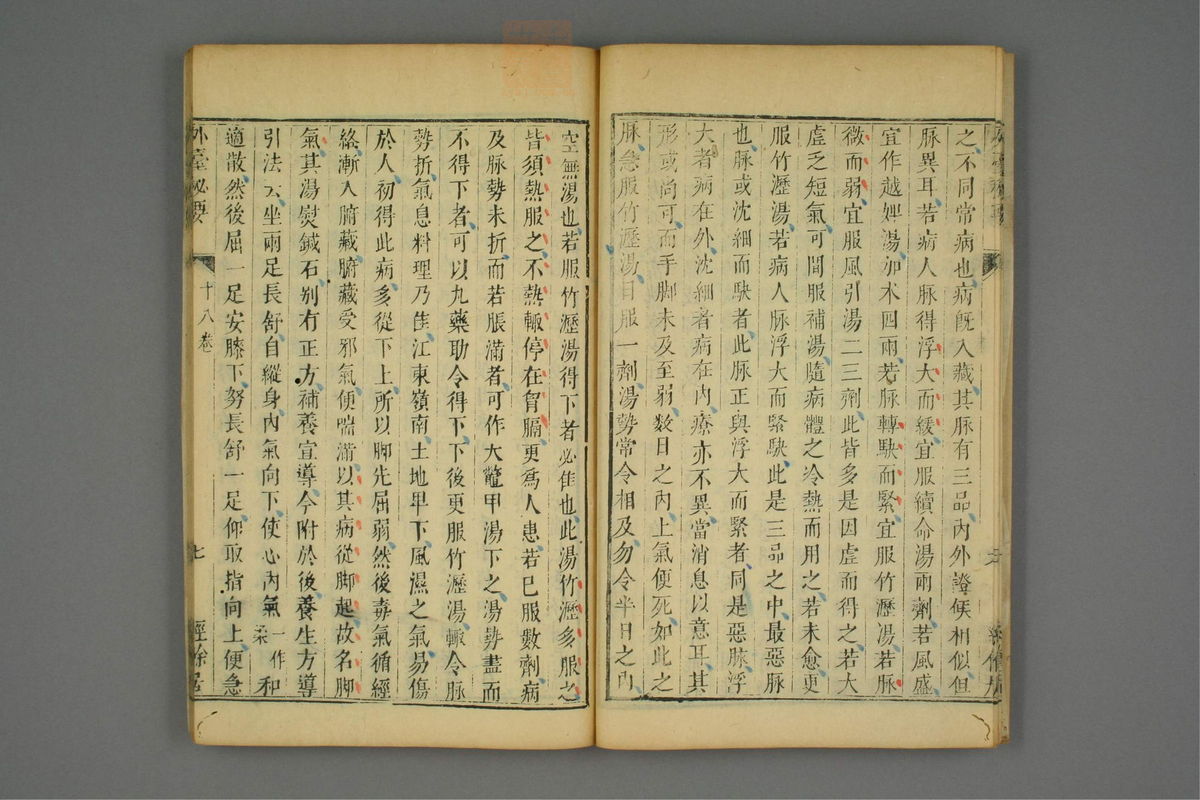 之不同常病也病旣入藏其脉有三品內外證候相似但
脉異耳若病人脉得浮大而緩宜服續命湯兩劑若風盛
宜作越婢湯加术四兩若脉轉駃而緊宜服竹瀝湯若脉
微而弱宜服風引湯二三劑此皆多是因虛而得之若大
虛乏短氣可間服補湯隨病體之冷熱而用之若未愈更
服竹瀝湯若病人脉浮大而緊駃此是三品之中最惡脉
也脉或沈細而駃者此脉正與浮大而緊者同是惡脉浮
大者病在外沈細者病在內療亦不異當消息以意耳其
形或尚可而手脚未及至弱數日之內上氣便死如此之
脉急服竹瀝湯日服一劑湯勢常令相及勿令半日之內
空無湯也若服竹瀝湯得下者必佳也此湯竹瀝多服之
皆須熱服之不熱輙停在胷膈更爲人患若已服數劑病
及脉勢未折而若脹滿者可作大鼈甲湯下之湯勢盡而
不得下者可以丸藥助令得下下後更服竹瀝湯輙令脉
勢折氣息料理乃佳江東嶺南土地卑下風濕之氣易傷
於人初得此病多從下上所以脚先屈弱然後毒氣循經
絡漸入腑藏腑藏受邪氣便喘滿以其病從脚起故名脚
氣其湯熨鍼石别有正方補養宣導今附於後養生方導
引法云坐兩足長舒自縱身內氣向下使心內氣柔一作和
適散然後屈一足安膝下努長舒一足仰取指向上便急
外臺秘要
十八卷
七
經餘居